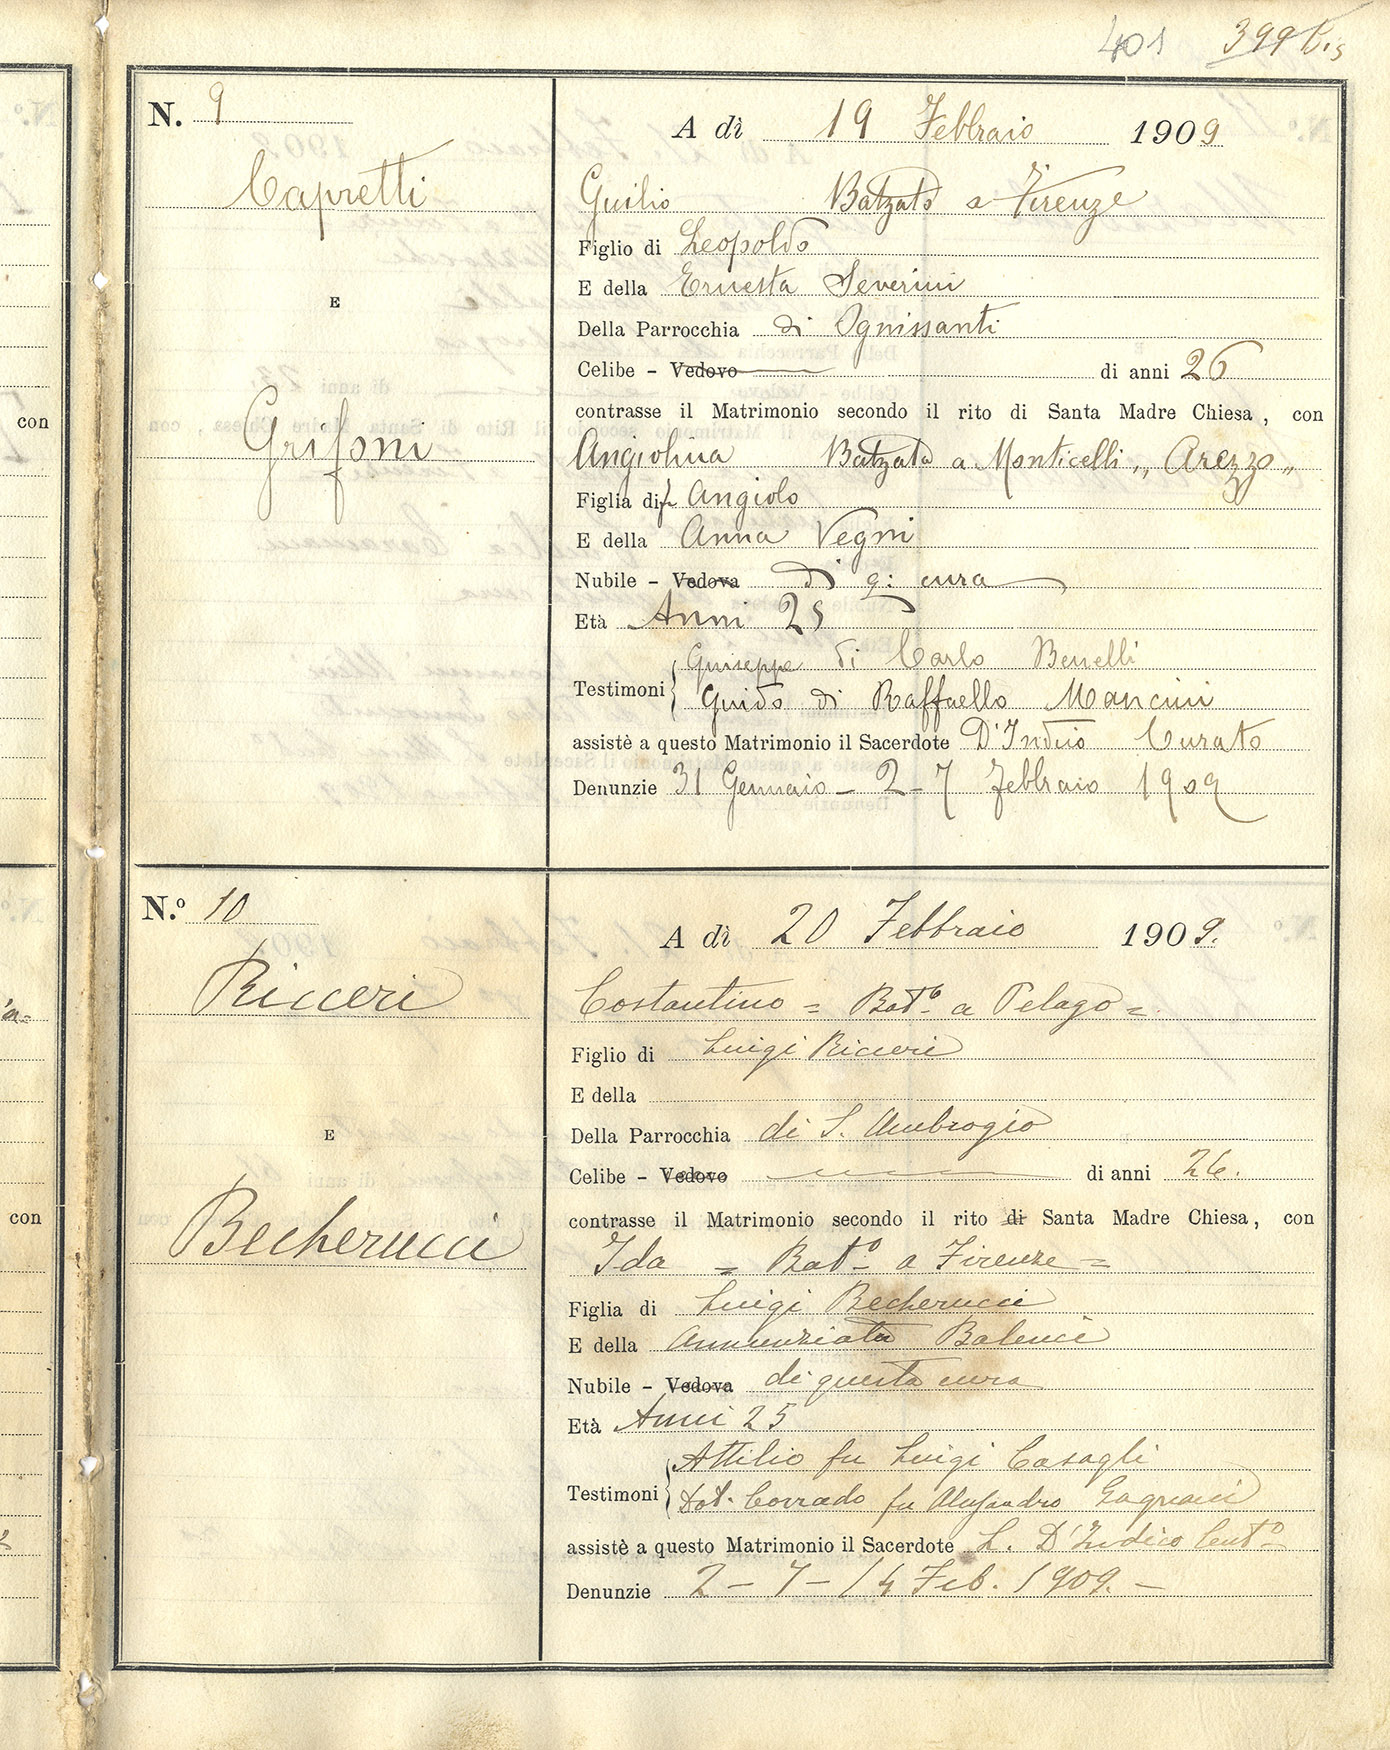 401 399 bis
N. 9
Capretti
E
Grifoni
A dì 19 Febbraio 1909
Guilio Batzato a Firenze
Figlio di Leopoldo
E della Ernesta Severini
Della Parrocchia di Ognissanti
Celibe - Vedovo di anni 26
contrasse il Matrimonio secondo il rito di Santa Madre Chiesa, con
Angiolina Batzata a Monticelli „ Arezzo „
Figlia di fu Angiolo
E della Anna Vegni
Nubile - Vedova di q: cura
Età Anni 25
Guiseppe di Carlo Benelli
Testimoni
Guido di Raffaello Mancini
assistè a questo Matrimonio il Sacerdote D'Indico Curato
Denunzie 31 Gennaio - 2 - 7 Febbraio 1909
N.º 10
Ricceri
E
Becherucci
A dì 20 Febbraio 1909.
Costantino = Batº a Pelago =
Figlio di Luigi Ricceri
E della
Della Parrocchia di S. Ambrogio
Celibe - Vedovo di anni 26.
contrasse il Matrimonio secondo il rito di Santa Madre Chiesa, con
Ida = Batº a Firenze =
Figlia di Luigi Becherucci
E della Annunziata Balenci
Nubile - Vedova di questa cura
Età Anni 25
Attilio fu Luigi Casagli
Testimoni
Dot. Corrado fu Alessandro
assistè a questo Matrimonio il Sacerdote L. D'Indico
Denunzie 2 - 7 - 14 Feb. 1909. -
con
con